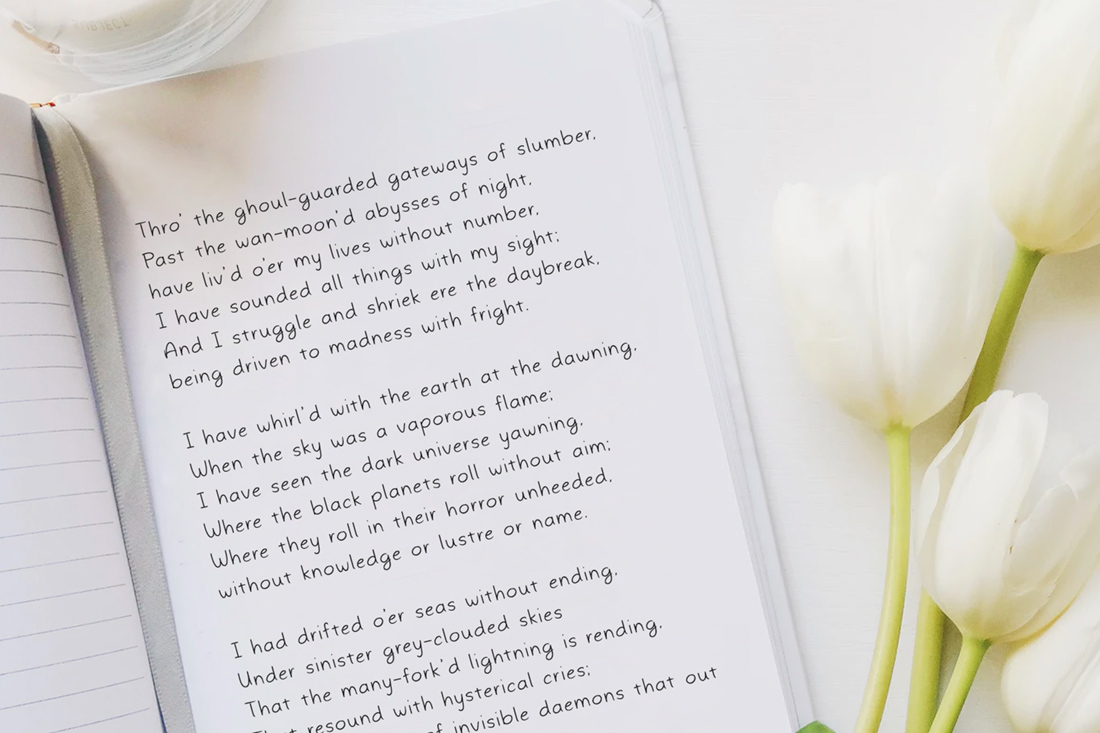 Thro' the ghoul-guarded gateways of slumber,
Past the wan-moon'd abysses of night,
have liv'd o'er my lives without number,
I have sounded all things with my sight;
And I struggle and shriek ere the daybreak,
being driven to madness with fright.
I have whirl'd with the earth at the dawning,
When the sky was a vaporous flame;
I have seen the dark universe yawning,
Where the black planets roll without aim;
Where they roll in their horror unheeded,
without knowledge or lustre or name.
I had drifted o'er seas without ending,
Under sinister grey-clouded skies
That the many-fork'd lightning is rending,
That resound with hysterical cries;
of invisible daemons that out